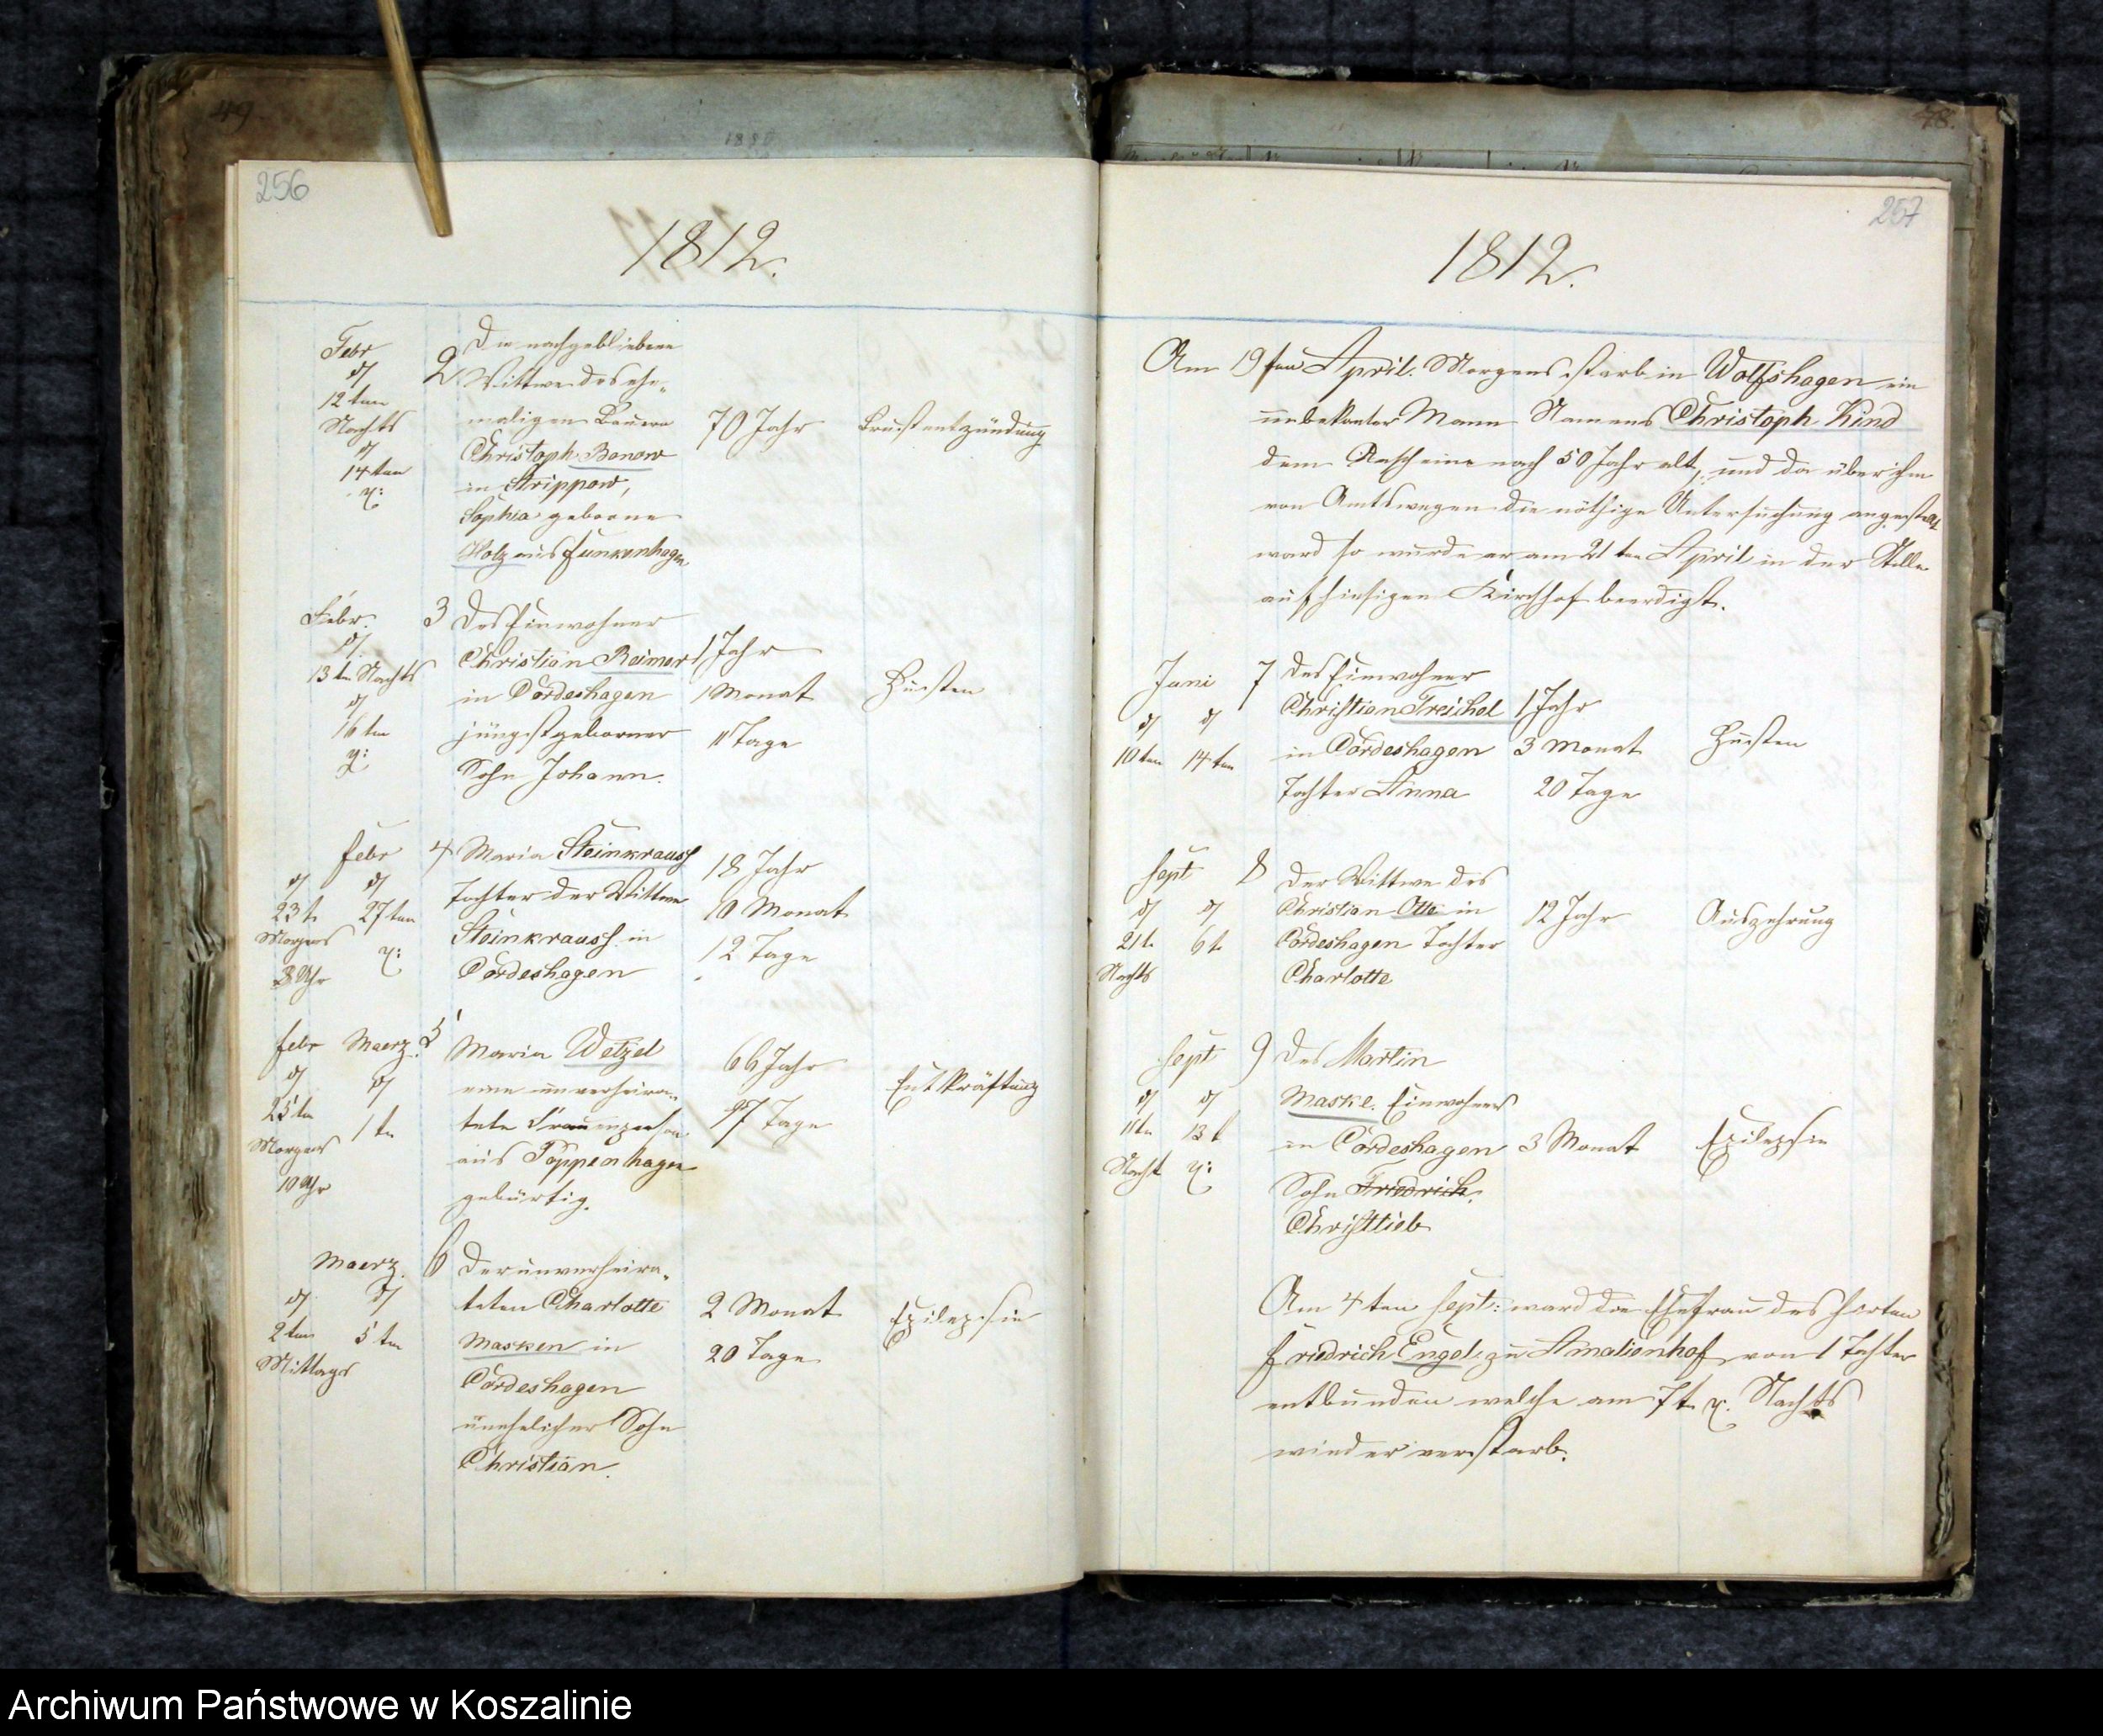 49
78.
256
1812.
Febr
d
12 ten
Nachts
d
14 ten
x:
2
Die nachgebliebene
Wittwe des ehe-
maligen Bauern
Christoph Bonow
in Strippow,
Sophia geborne
Holz aus Funkenhagen
70 Jahr
Brustentzündung
Febr.
d
13 ten Nachts
d
16 ten
x:
3
Des Einwohner
Christian Reimer
in Cordeshagen
jüngstgeborner
Sohn Johann.
1 Jahr
1 Monat
11 Tage
Husten
Febr
d d
23 t. 27 ten
Morgens
x:
3 Uhr
4
Maria Steinkrauss
Tochter der Wittwe
Steinkrauss in
Cordeshagen
18 Jahr
10 Monat
12 Tage
Febr Maerz.
d d
25 ten
1 ten
Morgens
10 Uhr
5
Maria Wetzel
eine unverheira-
tete Frauensperson
aus Poppenhagen
gebürtig.
66 Jahr
27 Tage
Entkräftung
Maerz.
d d
2 ten 5 ten
Mittags
6
Der unverheira-
teten Charlotte
Masken in
Cordeshagen
unehelicher Sohn
Christian.
2 Monat
20 Tage
Epilepsie
257
1812.
Am 19 ten April. Morgens starb in Wolfshagen ein
unbekanter Mann Namens Christoph Kind
dem Anscheine nach 50 Jahr alt, und da über ihm
von Amtswegen die nöthige Untersuchung angestelt
ward so wurde er am 21 ten April in der Stille
auf hiesigen Kirchhof beerdigt.
Juni
d d
10 ten 14 ten
7
Des Einwohner
Christian Treichel
in Cordeshagen
Tochter Anna
1 Jahr
3 Monat
20 Tage
Husten
Sept
d d
21 t. 6 t.
Nachts
8
Der Wittwe des
Christian Otto in
Cordeshagen Tochter
Charlotte
12 Jahr
Auszehrung
Sept
d d
11 ten 13 t
Nacht x:
9
Des Martin
Maske. Einwohner
in Cordeshagen
Sohn Friedrich.
Christlieb
3 Monat
Epilepsie
Am 4 ten Sept: ward die Ehefrau des
Friedrich Engel zu Amalienhof von 1 Tochter
entbunden welche am 7 t. x. Nachts
wieder verstarb.
Archiwum Państwowe w Koszalinie